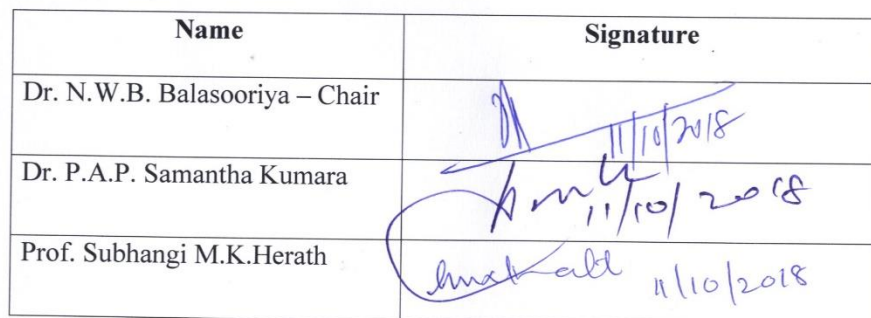 Name Signature
Dr. N.W.B. Balasooriya – Chair 11/10/2018
Dr. P.A.P. Samantha Kumara 11/10/2018
Prof. Subhangi M.K.Herath 11/10/2018